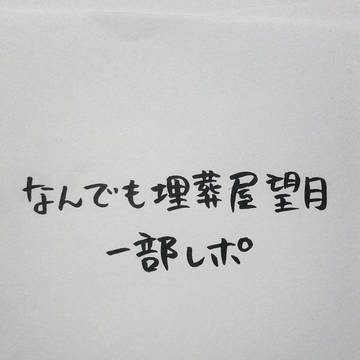 なんでも埋葬屋望月
一部レポ